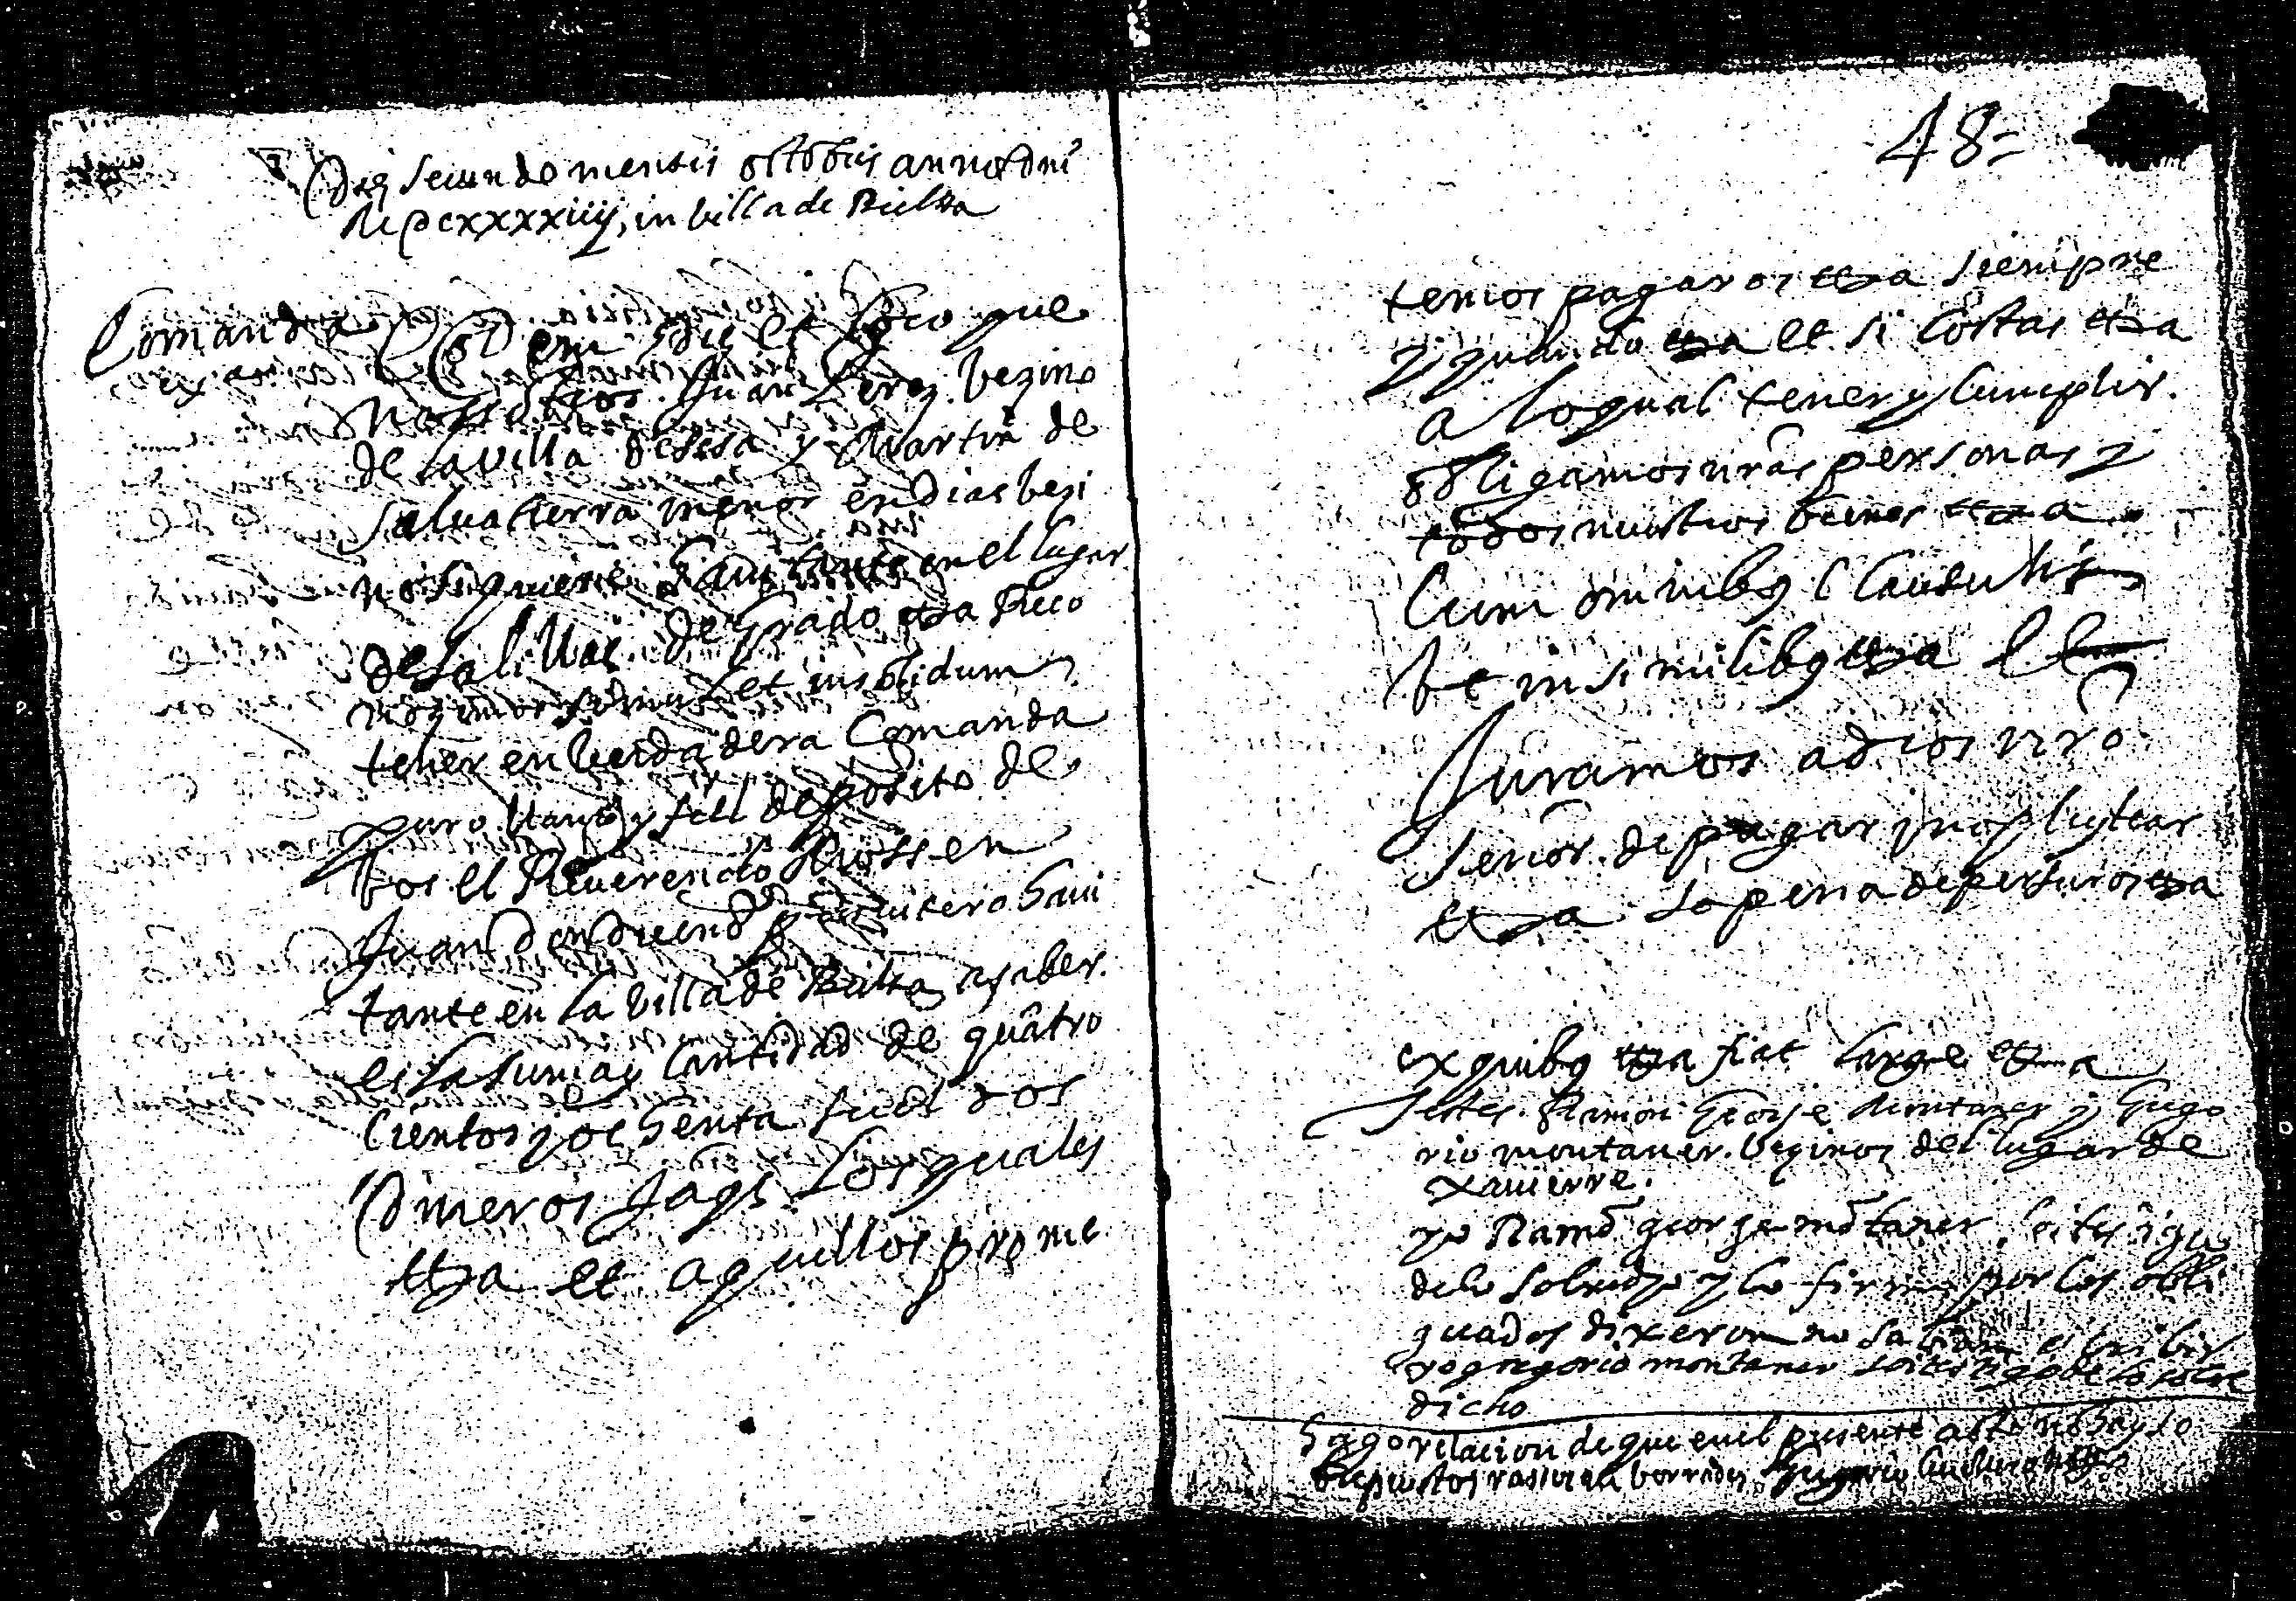 Die secundo mensis octobris anno dni
MDCXXXXIIIJ, in villa de Bielsa
Comanda
Eadem die et loco que
nosotros Juan Perez vezino
de la villa de Sesa y Martin de
Salvatierra menor en dias vezi
no siquiere havitante en el lugar
de Salillas de Grado etca Reco
nozemos simul et insolidum
tener en verdadera Comanda
puro llano y fiel deposito de
vos el Reverendo Mossen
Juan presbitero havi
tante en la villa de Bielsa asaber
es la suma y cantidad de quatro
cientos y ochenta sueldos
Dineros Jaqs los quales
etca et aquellos prome
48=
temos pagaros etca siempre
y quando etca et si costas etca
a lo qual tener y cumplir
obligamos nras personas y
todos nuestros bienes etca
Cum omnibus clausulis
et in similibus etca Et
Juramos a dios nro
señor de pagar y no pleytear
etca so pena de perjuros etca
ex quibus etca fiat large etca
Testes Ramon George Montaner y Grego
rio montaner vezinos del lugar de
xavierre
yo Ramō george mōtaner soi testigo
de lo sobredi y lo firmo por los obli
guados dixeron no sabian escribir
yo gregorio montaner soi testigo de lo sobre
dicho
Hago relacion de que en el presente acto no hay so
brepuestos rassura borrados